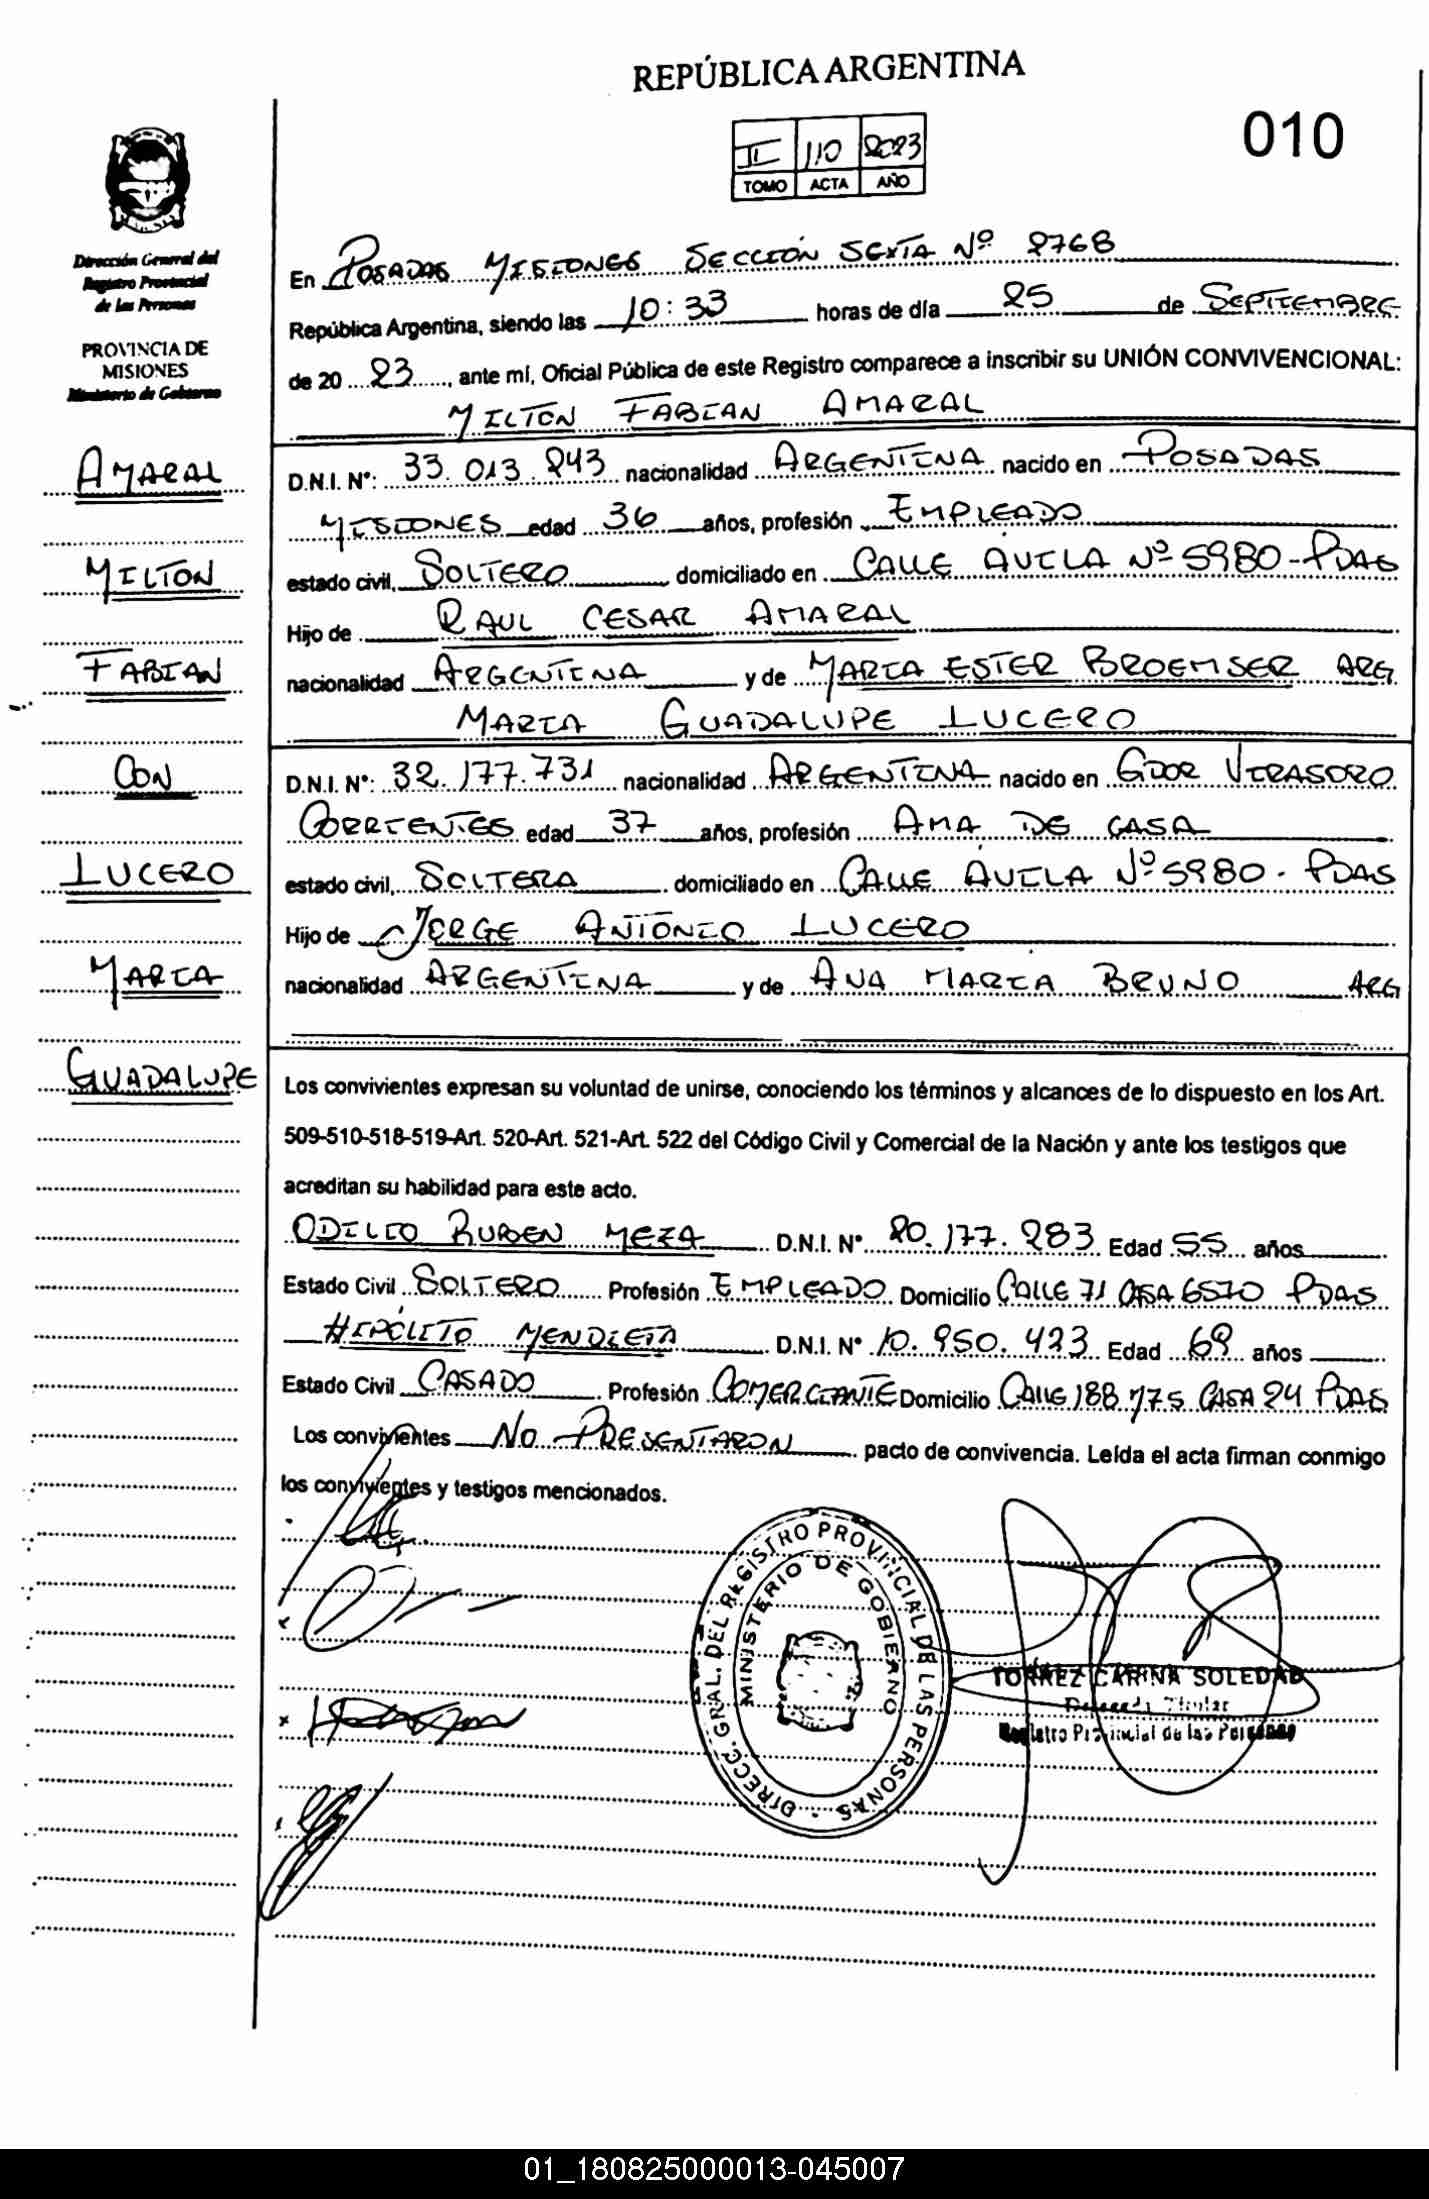 REPÚBLICA ARGENTINA
010
II 110 2023
TOMO ACTA AÑO
Dirección General del
Registro Provincial
de las Personas
PROVINCIA DE
MISIONES
Ministerio de Gobierno
En POSADAS MISIONES SECCIÓN SEXTA Nº 2768
República Argentina, siendo las 10:33 horas de día 25 de SEPTIEMBRE
de 20 23, ante mí, Oficial Pública de este Registro comparece a inscribir su UNIÓN CONVIVENCIONAL:
MILTON FABIAN AMARAL
AMARAL
MILTON
FABIAN
CON
LUCERO
MARIA
GUADALUPE
D.N.I. Nº: 33.013.243 nacionalidad ARGENTINA nacido en POSADAS
MISIONES edad 36 años, profesión EMPLEADO
estado civil, SOLTERO domiciliado en CALLE AVILA Nº 5980-PDAS
Hijo de RAUL CESAR AMARAL
nacionalidad ARGENTINA y de MARIA ESTER BROEMSER ARG
MARIA GUADALUPE LUCERO
D.N.I. Nº: 32.177.731 nacionalidad ARGENTINA nacido en GDOR VIRASORO
CORRIENTES edad 37 años, profesión AMA DE CASA
estado civil, SOLTERA domiciliado en CALLE AVILA Nº 5980-PDAS
Hijo de JORGE ANTONIO LUCERO
nacionalidad ARGENTINA y de ANA MARIA BRUNO ARG
Los convivientes expresan su voluntad de unirse, conociendo los términos y alcances de lo dispuesto en los Art.
509-510-518-519-Art. 520-Art. 521-Art. 522 del Código Civil y Comercial de la Nación y ante los testigos que
acreditan su habilidad para este acto.
ODILIO RUBEN MEZA D.N.I. Nº 20.177.283 Edad 55 años
Estado Civil SOLTERO Profesión EMPLEADO Domicilio CALLE 71 CASA 6570 PDAS
HIPÓLITO MENDIETA D.N.I. Nº 10.950.423 Edad 69 años
Estado Civil CASADO Profesión COMERCIANTE Domicilio CALLE 188 CASA 24 PDAS
Los convivientes NO PRESENTARON pacto de convivencia. Leída el acta firman conmigo
los convivientes y testigos mencionados.
DIRECC. GRAL. DEL REGISTRO PROVINCIAL DE LAS PERSONAS
MINISTERIO DE GOBIERNO
TORREZ CARINA SOLEDAD
Delegada Titular
Registro Provincial de las Personas
01_180825000013-045007